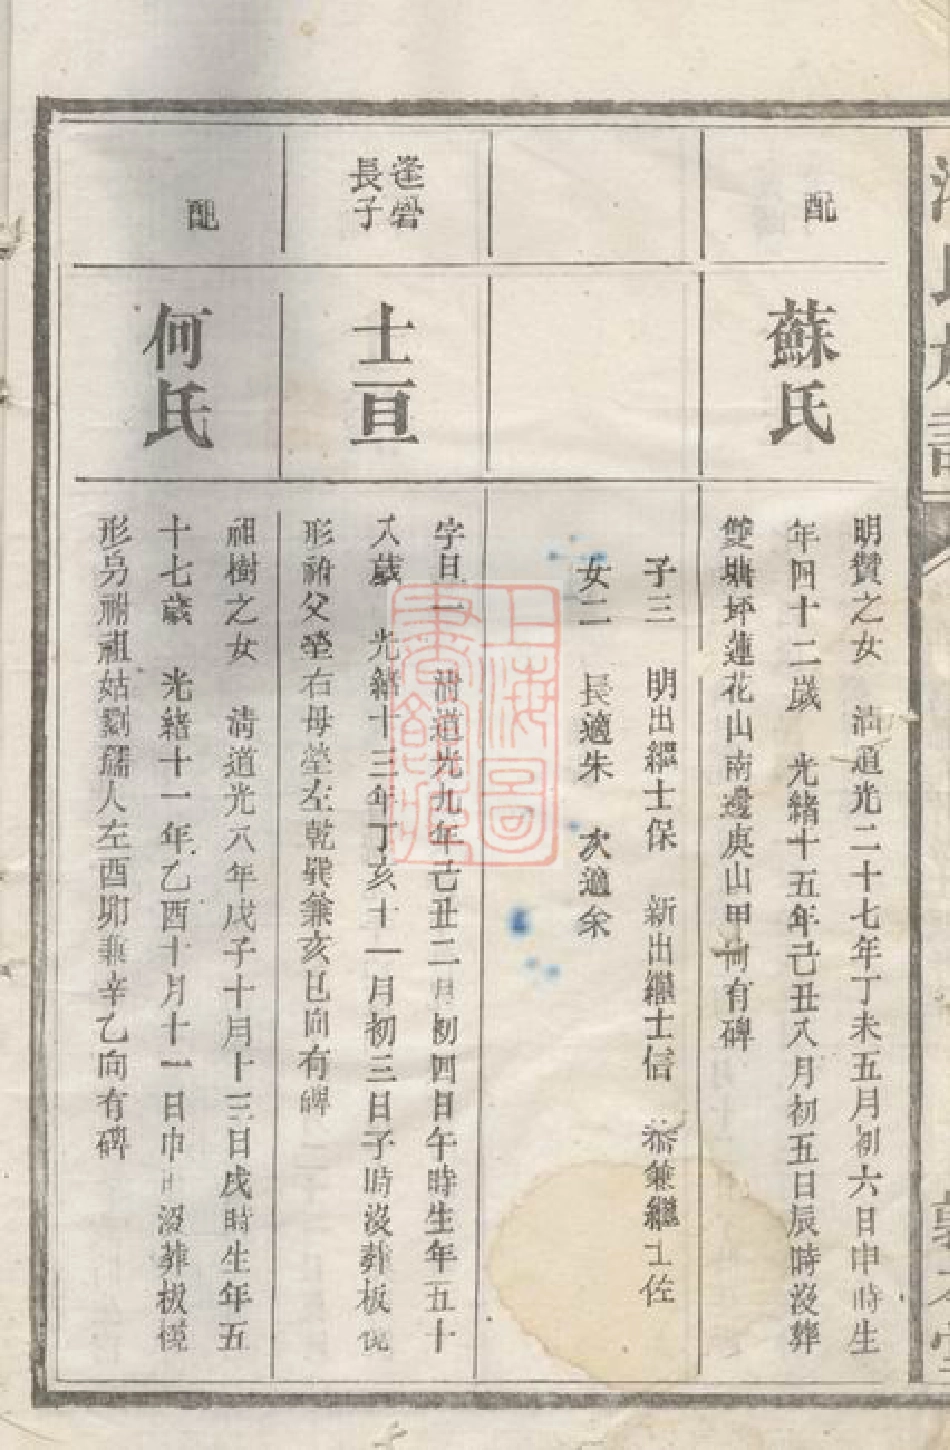 配
蘇氏
明贊之女 清道光二十七年丁未五月初六日申時生
年四十二歲 光緒十五年己丑八月初五日辰時沒葬
雙塘坪蓮花山南邊庚山甲向有碑
子三 明出繼士保 新出繼士信 泰兼繼士佐
女二 長適朱 次適余
逢嚳
長子
士亘
字旦一 清道光九年己丑二月初四日午時生年五十
八歲 光緒十三年丁亥十一月初三日子時沒葬板㮄
形祔父塋右母塋左乾巽兼亥巳向有碑
配
何氏
祖樹之女 清道光八年戊子十月十三日戌時生年五
十七歲 光緒十一年乙酉十月十一日巾時沒葬板㮄
形另祔祖姑劉孺人左酉卯兼辛乙向有碑
氏族譜
上海圖
書館藏